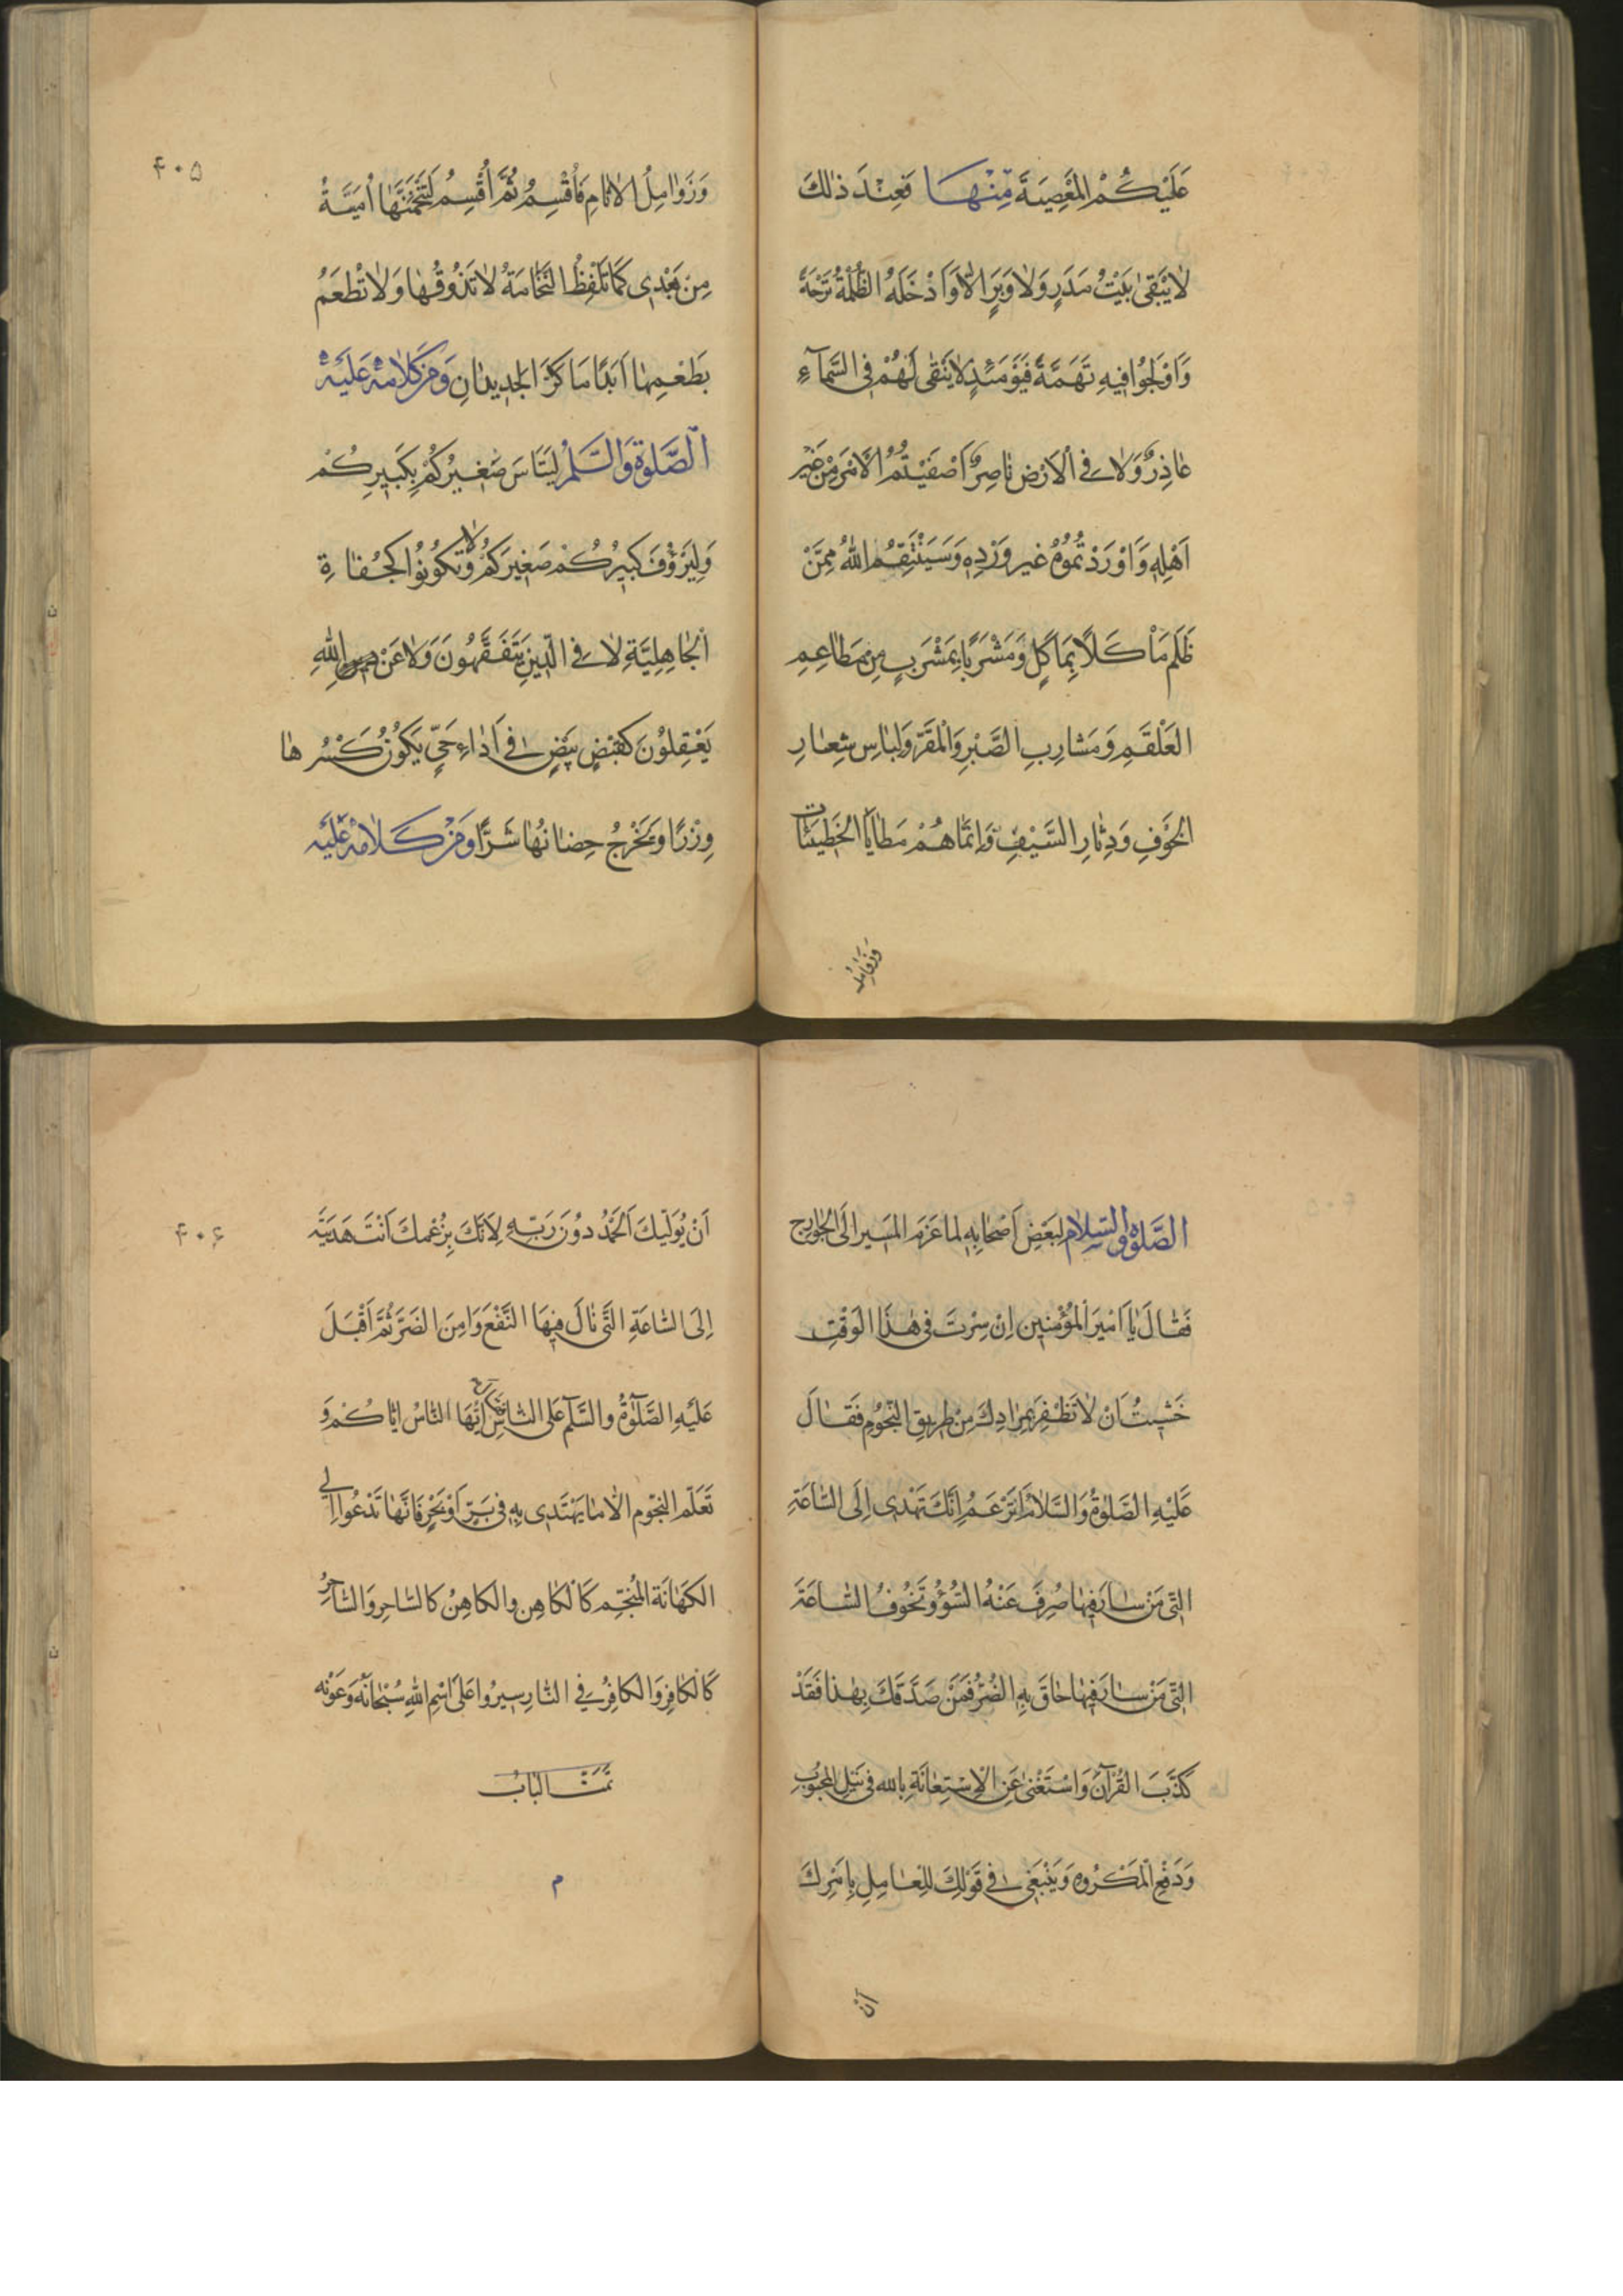 عَلَيْكُمْ المُغْصِيَةَ مِنْهَا فَعِنْدَ ذٰلكَ
لَا يَبْقىٰ بَيْتُ مَدَرٍ وَلَا وَبَرٍ اِلَّا وَاَدْخَلَهُ الظُلْمَةُ تَرْحَةً
وَاَوْلَجُوا فيهِ نَهَمَةً فَيَوْمَئِذٍ لَا يَبْقى لَهُمْ فِى السَّمآءِ
عٰاذِرٌ وَلَا فِى الْاَرْضِ نٰاصِرٌ اَصْفَيْتُمُ الْاَمْرَ مِنْ غَيْرِ
اَهْلِهِ وَاَوْرَدْتُمُوهُ غير وَرْدِهِ وَسَيَنْتَقِمُ اللهُ مِمَّنْ
ظَلَمَ مَاْكَلًا بِمَاْكَلٍ وَمَشْرَبًا بِمَشْرَبٍ مِنْ مَطٰاعِمِ
العَلْقَمِ وَمَشارِبِ الصَّبْرِ وَالْمَقَرِّ وَلِبٰاسِ شِعٰارِ
الخَوْفِ وَدِثٰارِ السَّيْفِ وَاِنَّمٰا هُمْ مَطٰايَا الخَطيئات
وَزَوٰامِلُ
۴۰۵
وَزَوٰامِلُ الاٰثامِ فَاُقْسِمُ ثُمَّ اُقْسِمُ لَتَنْخَمَنَّهٰا اُمَيَّةُ
مِنْ بَعْدِى كَمٰا تَلْفِظُ النَّخٰامَةُ لَا تَذُوقُهٰا وَلَا تُطْعَمُ
بِطَعْمِهٰا اَبَدًا مَا كَرَّ الجَديدٰانِ وَمِنْ كَلَامِهِ عَلَيْهِ
الصَّلٰوةُ وَالسَّلٰمُ لِيَتَاَسَّ صَغِيرُكُمْ بِكَبِيرِكُمْ
وَلْيَرْؤُفْ كَبيرُكُمْ صَغِيرَكُمْ وَلَا تَكُونُوا كَجُفٰاةِ
الْجٰاهِلِيَّةِ لَا فِى الدّينِ يَتَفَقَّهُونَ وَلَا عَنِ اللهِ
يَعْقِلُونَ كَقَيْضِ بَيْضٍ فى اَدٰاحٍ يَكُونُ كَسْرُهٰا
وِزْرًا وَيَخْرُجُ حِضٰانُهٰا شَرًّا وَمِنْ كَلَامِهِ عَلَيْهِ
الصَّلٰوةُ وَالسّلامُ لِبَعْضِ اَصْحٰابِهِ لما عَزَمَ المَسير الَى الخَوٰارِج
فَقٰالَ يٰا اَميرَ الْمُؤْمِنين اِنْ سِرْتَ فى هٰذَا الوَقْتِ
خَشيتُ اَنْ لَا تَظْفِرَ بِمُرٰادِكَ مِنْ طَريقِ النُّجُومِ فَقٰالَ
عَلَيْهِ الصَّلٰوةُ وَالسَّلامُ اَتَزْعَمُ اِنَّكَ تَهْدِى اِلَى السّٰاعَةِ
الَّتِى مَنْ سٰارَ فيهٰا صُرِفَ عَنْهُ السُّوءُ وَتَخُوفُ السّٰاعَةَ
الَّتِى مَنْ سٰارَ فيهٰا حٰاقَ بِهِ الضُّرُّ فَمَنْ صَدَّقَكَ بِهٰذا فَقَدْ
كَذَّبَ القُرْآنَ وَاسْتَغْنىٰ عَنِ الْاِسْتِعٰانَةِ بِاللهِ فى نَيْلِ المحْبُوبِ
وَدَفْعِ الْمَكْرُوهِ وَيَنْبَغى فى قَوْلِكَ لِلْعٰامِلِ بِاَمْرِكَ
اَنْ
۴۰۶
اَنْ يُولِيَكَ اَلحَمْدُ دُونَ رَبِّهِ لِاَنَّكَ بِزُعْمِكَ اَنْتَ هَدَيْتَهُ
اِلَى السّٰاعَةِ الَّتى نٰالَ فيهَا النَّفْعَ وَاَمِنَ الضَرَّ ثُمَّ اَقْبَلَ
عَلَيْهِ الصَّلٰوةُ والسَّلٰم عَلى النّاسِ اَيُّهَا النّٰاسُ ايّٰاكُمْ وَ
تَعَلُّم النجُوم الّا مٰا يُهْتَدى بِهِ فى بَرٍّ اَوْ بَحْرٍ فَاِنَّهٰا تَدْعُوا اِلى
الكَهٰانَة المُنَجِّم كَالْكٰاهِن والكاهِنُ كالسّاحِر وَالسّٰاحِرُ
كَالكٰافِر وَالكافِرُ فِى النّٰارِ سيرُوا عَلىٰ اسْمِ اللهِ سُبْحٰانَهُ وَعَوْنِه
تَمَّتَ البٰابُ
م